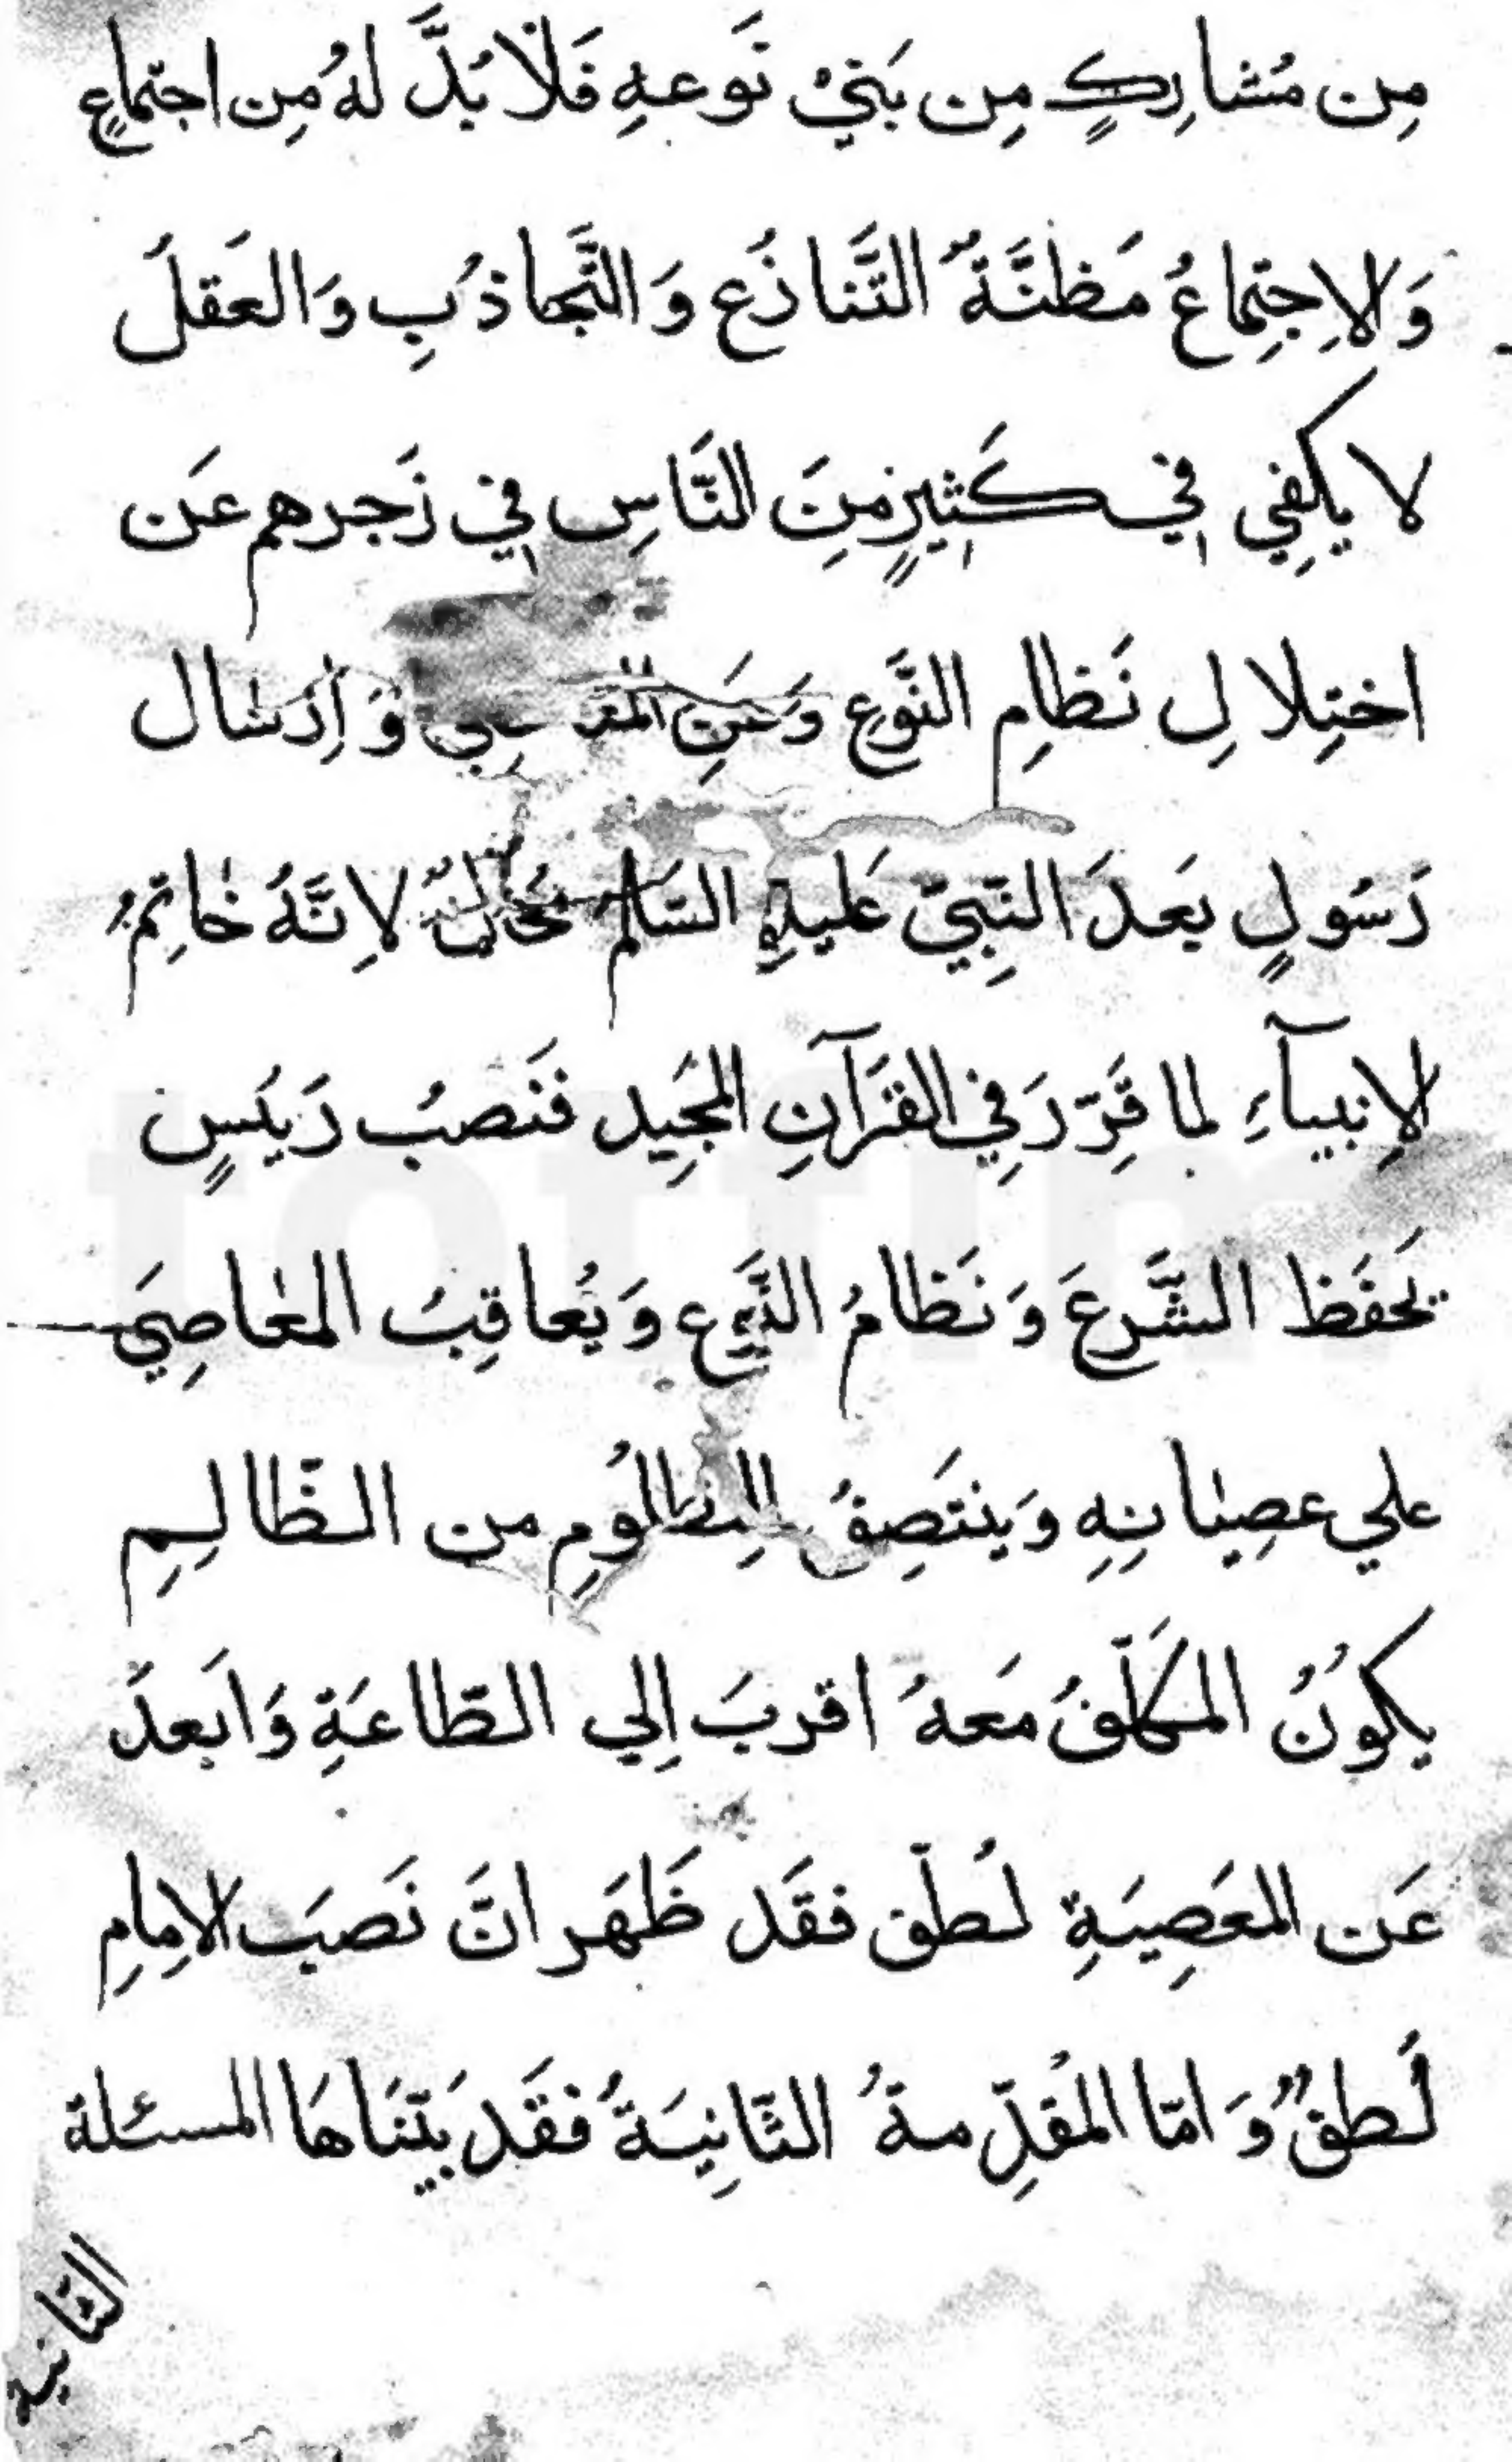 مِن مُشارِكٍ مِن بَنيْ نَوعهِ فَلَا بُدَّ لهُ مِن اجتماعٍ
وَالاِجتِماعُ مَظنَّةُ التَّنازُع وَالتَّجاذُبِ وَالعَقلُ
لا يكفِي في كَثيرٍ مِنَ النَّاسِ في زَجرهم عَن
اختِلالِ نَظامِ النَّوعِ وَعَنِ وَاِرسَال
رَسُولٍ بَعدَ النَّبِيّ عَليهِ السَّلم مُحالٌ لاِنَّهُ خَاتِمُ
الاِنبيآءِ لما قُرِّرَ فِي القُرَآنِ المجَيِد فَنَصبُ رَئيسٍ
يَحفَظ الشَّرعَ وَنَظامُ النَّوع وَيُعاقِبُ المعَاصِيَ
علي عصِيَانِهِ وَينتَصِفُ لِلمظلُومِ من الظّالِمِ
يكوُنُ المكَلّفُ مَعهُ اقربَ اِلي الطّاعَةِ وَاَبعدَ
عَن المعَصِيَةِ لُطف فقَد ظَهَر انَّ نَصبَ الاِمامِ
لُطفٌ وَ امّا المُقدِّمةُ الثَّانِيَةُ فقَد بَيّنَاهَا المسئلة
الثانية